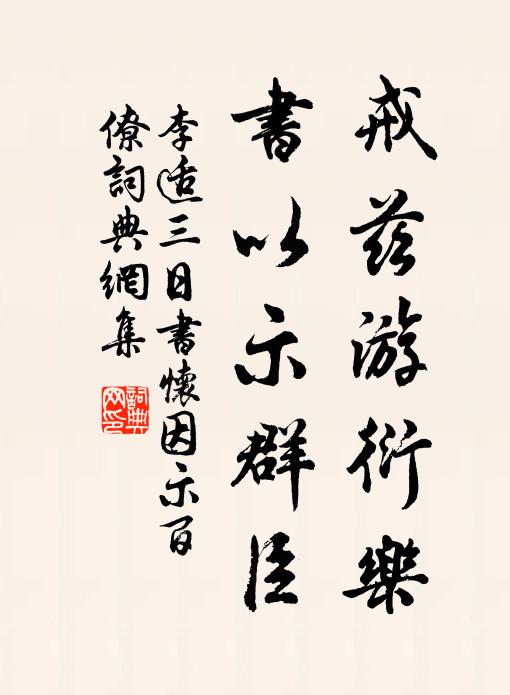 戒茲游衍樂
書以示群臣
李适三日書懷因示百
僚詞典網集
詞典网印